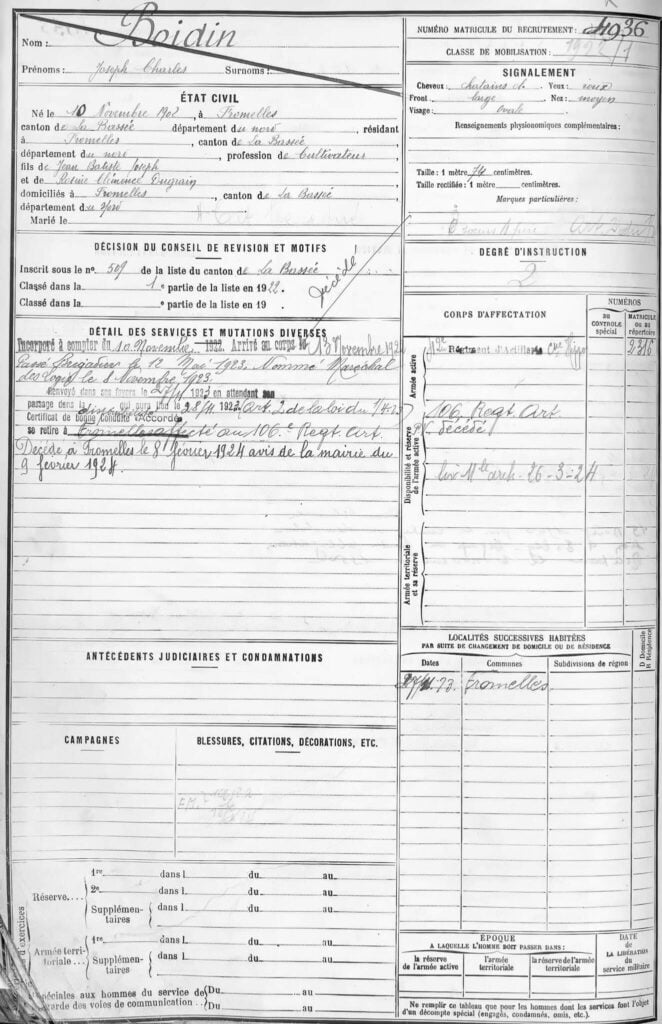 Nom : Boidin
Prénoms : Joseph Charles Surnoms :
ÉTAT CIVIL
Né le 10 Novembre 1902, à Fromelles
canton de La Bassée département du nord, résidant
à Fromelles, canton de La Bassée,
département du nord, profession de Cultivateur
fils de Jean Batiste Joseph
et de Rosine Clémence Dugrain
domiciliés à Fromelles, canton de La Bassée
département du Nord
Marié le
DÉCISION DU CONSEIL DE REVISION ET MOTIFS
Inscrit sous le no 509 de la liste du canton de La Bassée
Classé dans la 1e partie de la liste en 1922.
Classé dans la partie de la liste en 19
Décédé
DÉTAIL DES SERVICES ET MUTATIONS DIVERSES
Incorporé à compter du 10 Novembre 1922. Arrivé au corps le 13 Novembre 192
Passé Brigadier le 12 Mai 1923. Nommé Maréchal
des Logis le 8 Novembre 1923.
Renvoyé dans ses foyers le 27/11 1923 en attendant son
passage dans la disponibilité qui aura lieu le 28/11 1923 (Art. 2 de la loi du 1/4 23
Certificat de bonne Conduite "Accordé"
se retire à Fromelles affecté au 106e Regt Art.
Décédé à Fromelles le 8 février 1924 avis de la mairie du
9 février 1924.
ANTÉCÉDENTS JUDICIAIRES ET CONDAMNATIONS
CAMPAGNES
BLESSURES, CITATIONS, DÉCORATIONS, ETC.
d'exercices
Réserve....
1re dans l. du au
2e dans l. du au
Supplémentaires dans l. du au
Armée territoriale...
1re dans l. du au
Supplémentaires dans l. du au
Spéciales aux hommes du service de garde des voies de communication..
Du au
Du au
NUMÉRO MATRICULE DU RECRUTEMENT : 4936
CLASSE DE MOBILISATION : 1922/1
SIGNALEMENT
Cheveux : chatains cl. Yeux : roux
Front : large Nez : moyen
Visage : ovale
Renseignements physionomiques complémentaires :
Taille : 1 mètre 74 centimètres.
Taille rectifiée : 1 mètre centimètres.
Marques particulières :
DEGRÉ D'INSTRUCTION
2
CORPS D'AFFECTATION
NUMÉROS
AU CONTRÔLE spécial
MATRICULE OU AU répertoire
Armée active
42e Régiment d'Artillerie
2316
Disponibilité et réserve de l'armée active
106 Regt Art
Décédé
liv Mle arch - 26 - 3 - 24
Armée territoriale et sa réserve
LOCALITÉS SUCCESSIVES HABITÉES
PAR SUITE DE CHANGEMENT DE DOMICILE OU DE RÉSIDENCE
D Domicile R Résidence
Dates Communes Subdivisions de région
27/11 23. Fromelles.
ÉPOQUE
À LAQUELLE L'HOMME DOIT PASSER DANS :
DATE de LA LIBÉRATION du service militaire
la réserve de l'armée active
l'armée territoriale
la réserve de l'armée territoriale
Ne remplir ce tableau que pour les hommes dont les services font l'objet
d'un décompte spécial (engagés, condamnés, omis, etc.).